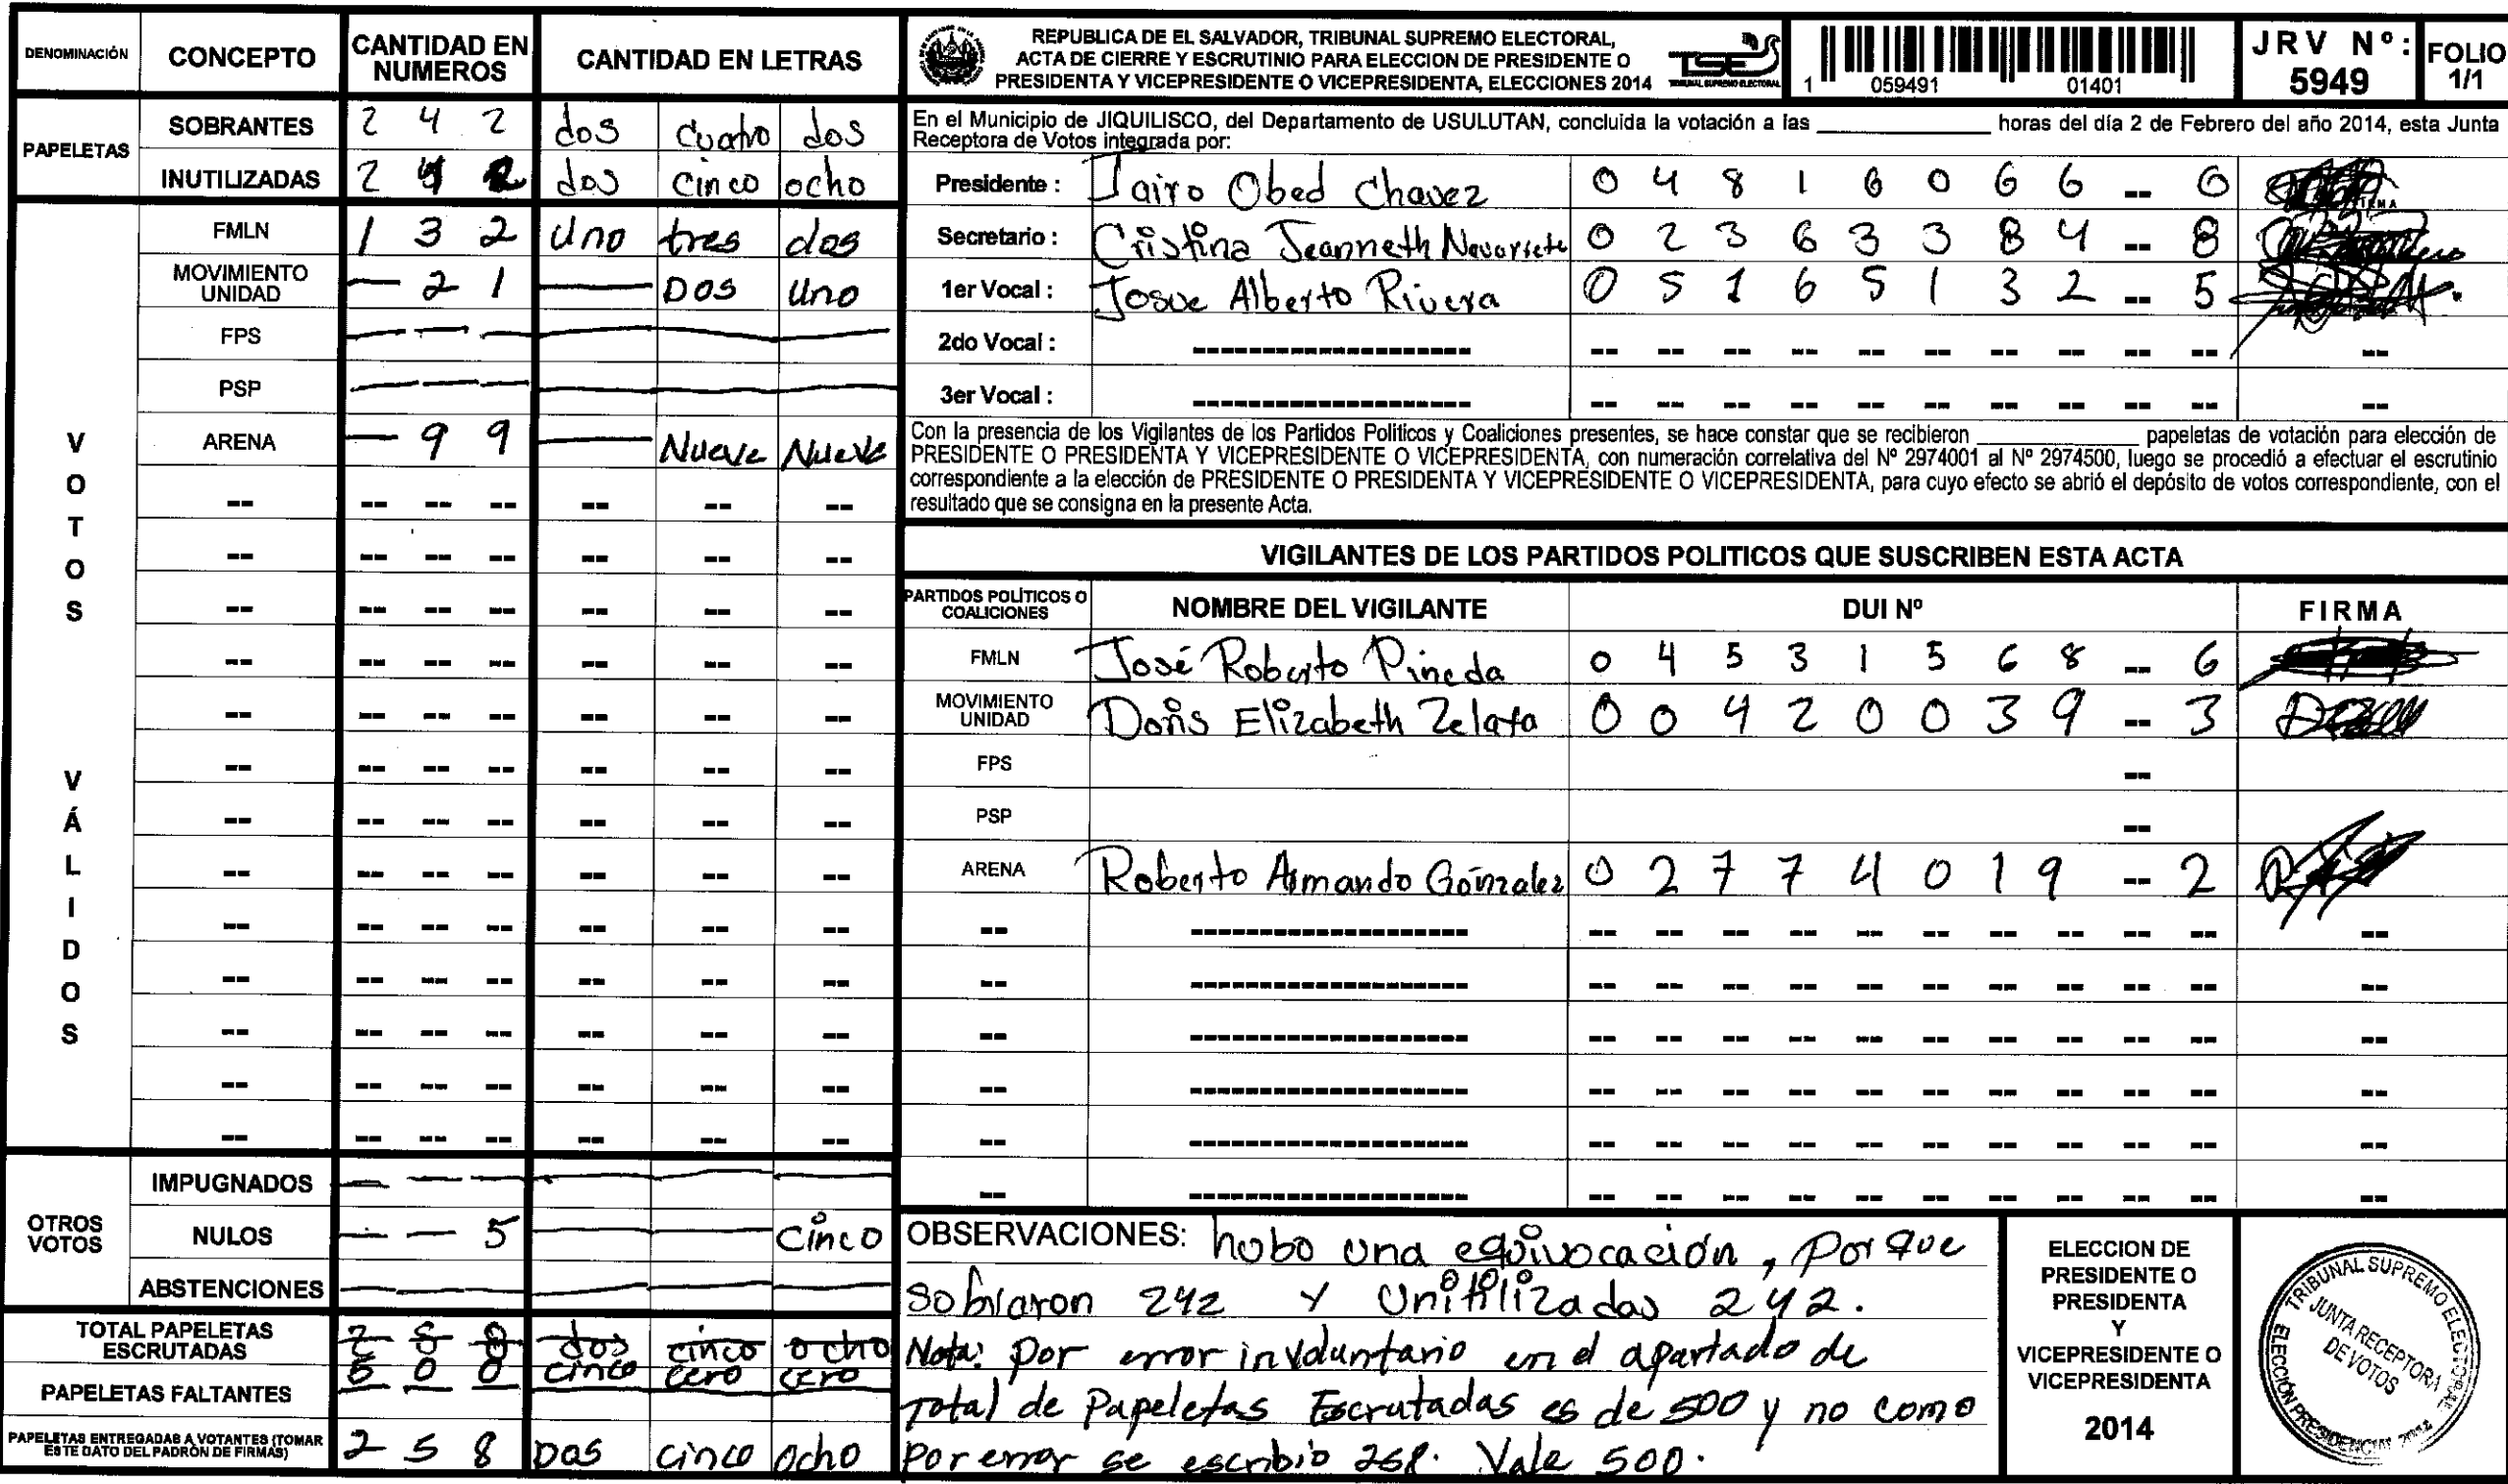 DENOMINACIÓN CONCEPTO CANTIDAD EN NUMEROS CANTIDAD EN LETRAS
PAPELETAS
SOBRANTES 2 4 2 dos cuatro dos
INUTILIZADAS 2 4 2 dos cinco ocho
VOTOS VÁLIDOS
FMLN 1 3 2 uno tres dos
MOVIMIENTO UNIDAD — 2 1 — DOS uno
FPS — — — — — —
PSP — — — — — —
ARENA — 9 9 — Nueve Nueve
-- -- -- -- -- -- --
-- -- -- -- -- -- --
-- -- -- -- -- -- --
-- -- -- -- -- -- --
-- -- -- -- -- -- --
-- -- -- -- -- -- --
-- -- -- -- -- -- --
-- -- -- -- -- -- --
-- -- -- -- -- -- --
-- -- -- -- -- -- --
-- -- -- -- -- -- --
-- -- -- -- -- -- --
-- -- -- -- -- -- --
OTROS VOTOS
IMPUGNADOS — — — — — —
NULOS — — 5 — — cinco
ABSTENCIONES — — — — — —
TOTAL PAPELETAS ESCRUTADAS 2 5 8 dos cinco ocho
5 0 0 cinco cero cero
PAPELETAS FALTANTES — — —
PAPELETAS ENTREGADAS A VOTANTES (TOMAR ESTE DATO DEL PADRÓN DE FIRMAS) 2 5 8 Dos cinco ocho
REPUBLICA DE EL SALVADOR, TRIBUNAL SUPREMO ELECTORAL,
ACTA DE CIERRE Y ESCRUTINIO PARA ELECCION DE PRESIDENTE O
PRESIDENTA Y VICEPRESIDENTE O VICEPRESIDENTA, ELECCIONES 2014
TSE
TRIBUNAL SUPREMO ELECTORAL
1 059491 01401
JRV Nº: 5949
FOLIO 1/1
En el Municipio de JIQUILISCO, del Departamento de USULUTAN, concluida la votación a las ____ horas del día 2 de Febrero del año 2014, esta Junta
Receptora de Votos integrada por:
Presidente : Jairo Obed Chavez 0 4 8 1 6 0 6 6 -- 6 FIRMA
Secretario : Cristina Jeanneth Navarrete 0 2 3 6 3 3 8 4 -- 8
1er Vocal : Josue Alberto Rivera 0 5 1 6 5 1 3 2 -- 5
2do Vocal : -------------------- -- -- -- -- -- -- -- -- -- -- --
3er Vocal : -------------------- -- -- -- -- -- -- -- -- -- -- --
Con la presencia de los Vigilantes de los Partidos Politicos y Coaliciones presentes, se hace constar que se recibieron ____ papeletas de votación para elección de
PRESIDENTE O PRESIDENTA Y VICEPRESIDENTE O VICEPRESIDENTA, con numeración correlativa del Nº 2974001 al Nº 2974500, luego se procedió a efectuar el escrutinio
correspondiente a la elección de PRESIDENTE O PRESIDENTA Y VICEPRESIDENTE O VICEPRESIDENTA, para cuyo efecto se abrió el depósito de votos correspondiente, con el
resultado que se consigna en la presente Acta.
VIGILANTES DE LOS PARTIDOS POLITICOS QUE SUSCRIBEN ESTA ACTA
PARTIDOS POLÍTICOS O COALICIONES NOMBRE DEL VIGILANTE DUI Nº FIRMA
FMLN José Roberto Pineda 0 4 5 3 1 5 6 8 -- 6
MOVIMIENTO UNIDAD Doris Elizabeth Zelaya 0 0 4 2 0 0 3 9 -- 3
FPS --
PSP --
ARENA Roberto Armando Gónzalez 0 2 7 7 4 0 1 9 -- 2
-- -------------------- -- -- -- -- -- -- -- -- -- -- --
-- -------------------- -- -- -- -- -- -- -- -- -- -- --
-- -------------------- -- -- -- -- -- -- -- -- -- -- --
-- -------------------- -- -- -- -- -- -- -- -- -- -- --
-- -------------------- -- -- -- -- -- -- -- -- -- -- --
-- -------------------- -- -- -- -- -- -- -- -- -- -- --
OBSERVACIONES: hubo una equivocación, Porque
Sobraron 242 y Unitilizadas 242.
Nota: Por error involuntario en el apartado de
Total de Papeletas Escrutadas es de 500 y no como
por error se escribio 258. Vale 500.
ELECCION DE
PRESIDENTE O
PRESIDENTA
Y
VICEPRESIDENTE O
VICEPRESIDENTA
2014
TRIBUNAL SUPREMO ELECTORAL
JUNTA RECEPTORA
DE VOTOS
ELECCIÓN PRESIDENCIAL 2014